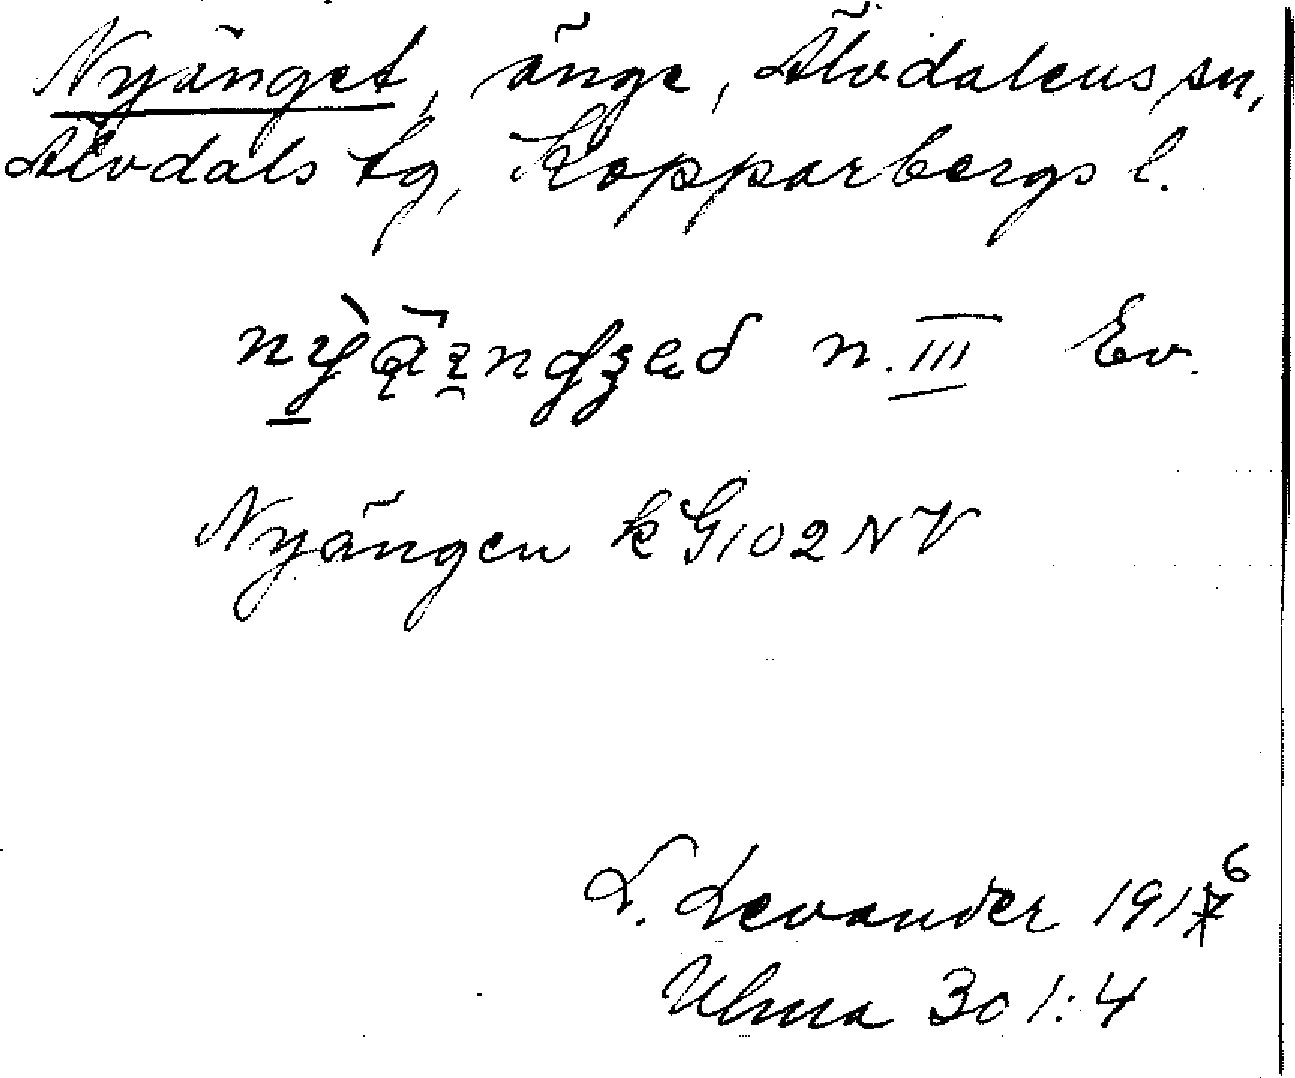 Nyänget, änge, Älvdalens sn,
Älvdals tg, Kopparbergs l.
n. III Ev.
Nyängen k G102NV
L. Levander 1916
Ulma 301:4